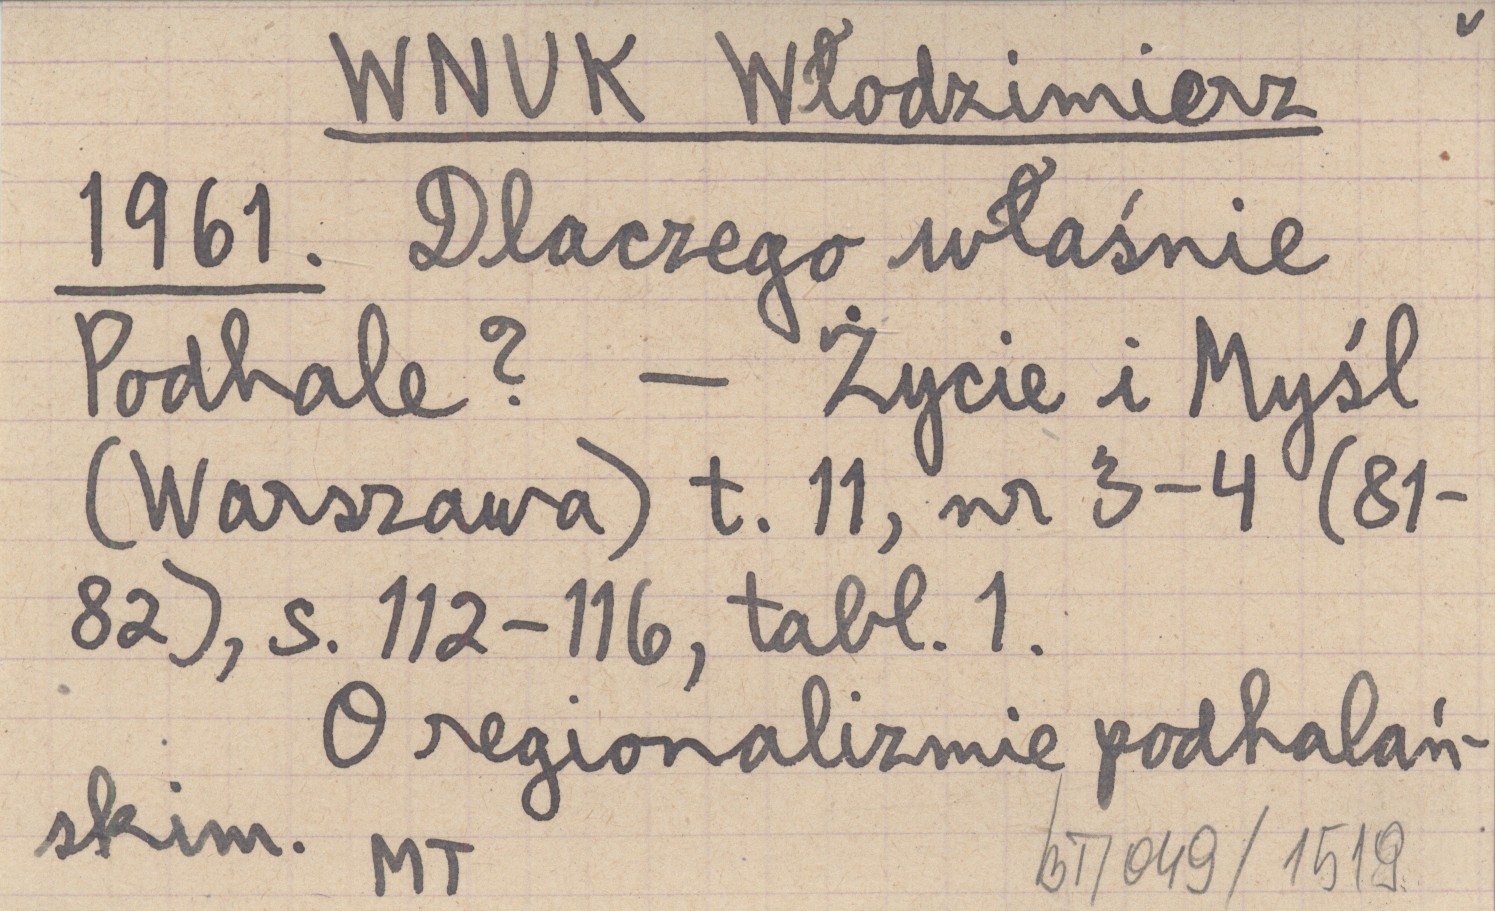 WNUK Włodzimierz
1961. Dlaczego właśnie
Podhale? — Życie i Myśl
(Warszawa) t. 11, nr 3-4 (81-
82), s. 112-116, tabl. 1.
O regionalizmie podhalań-
skim. MT
BT/049/1519